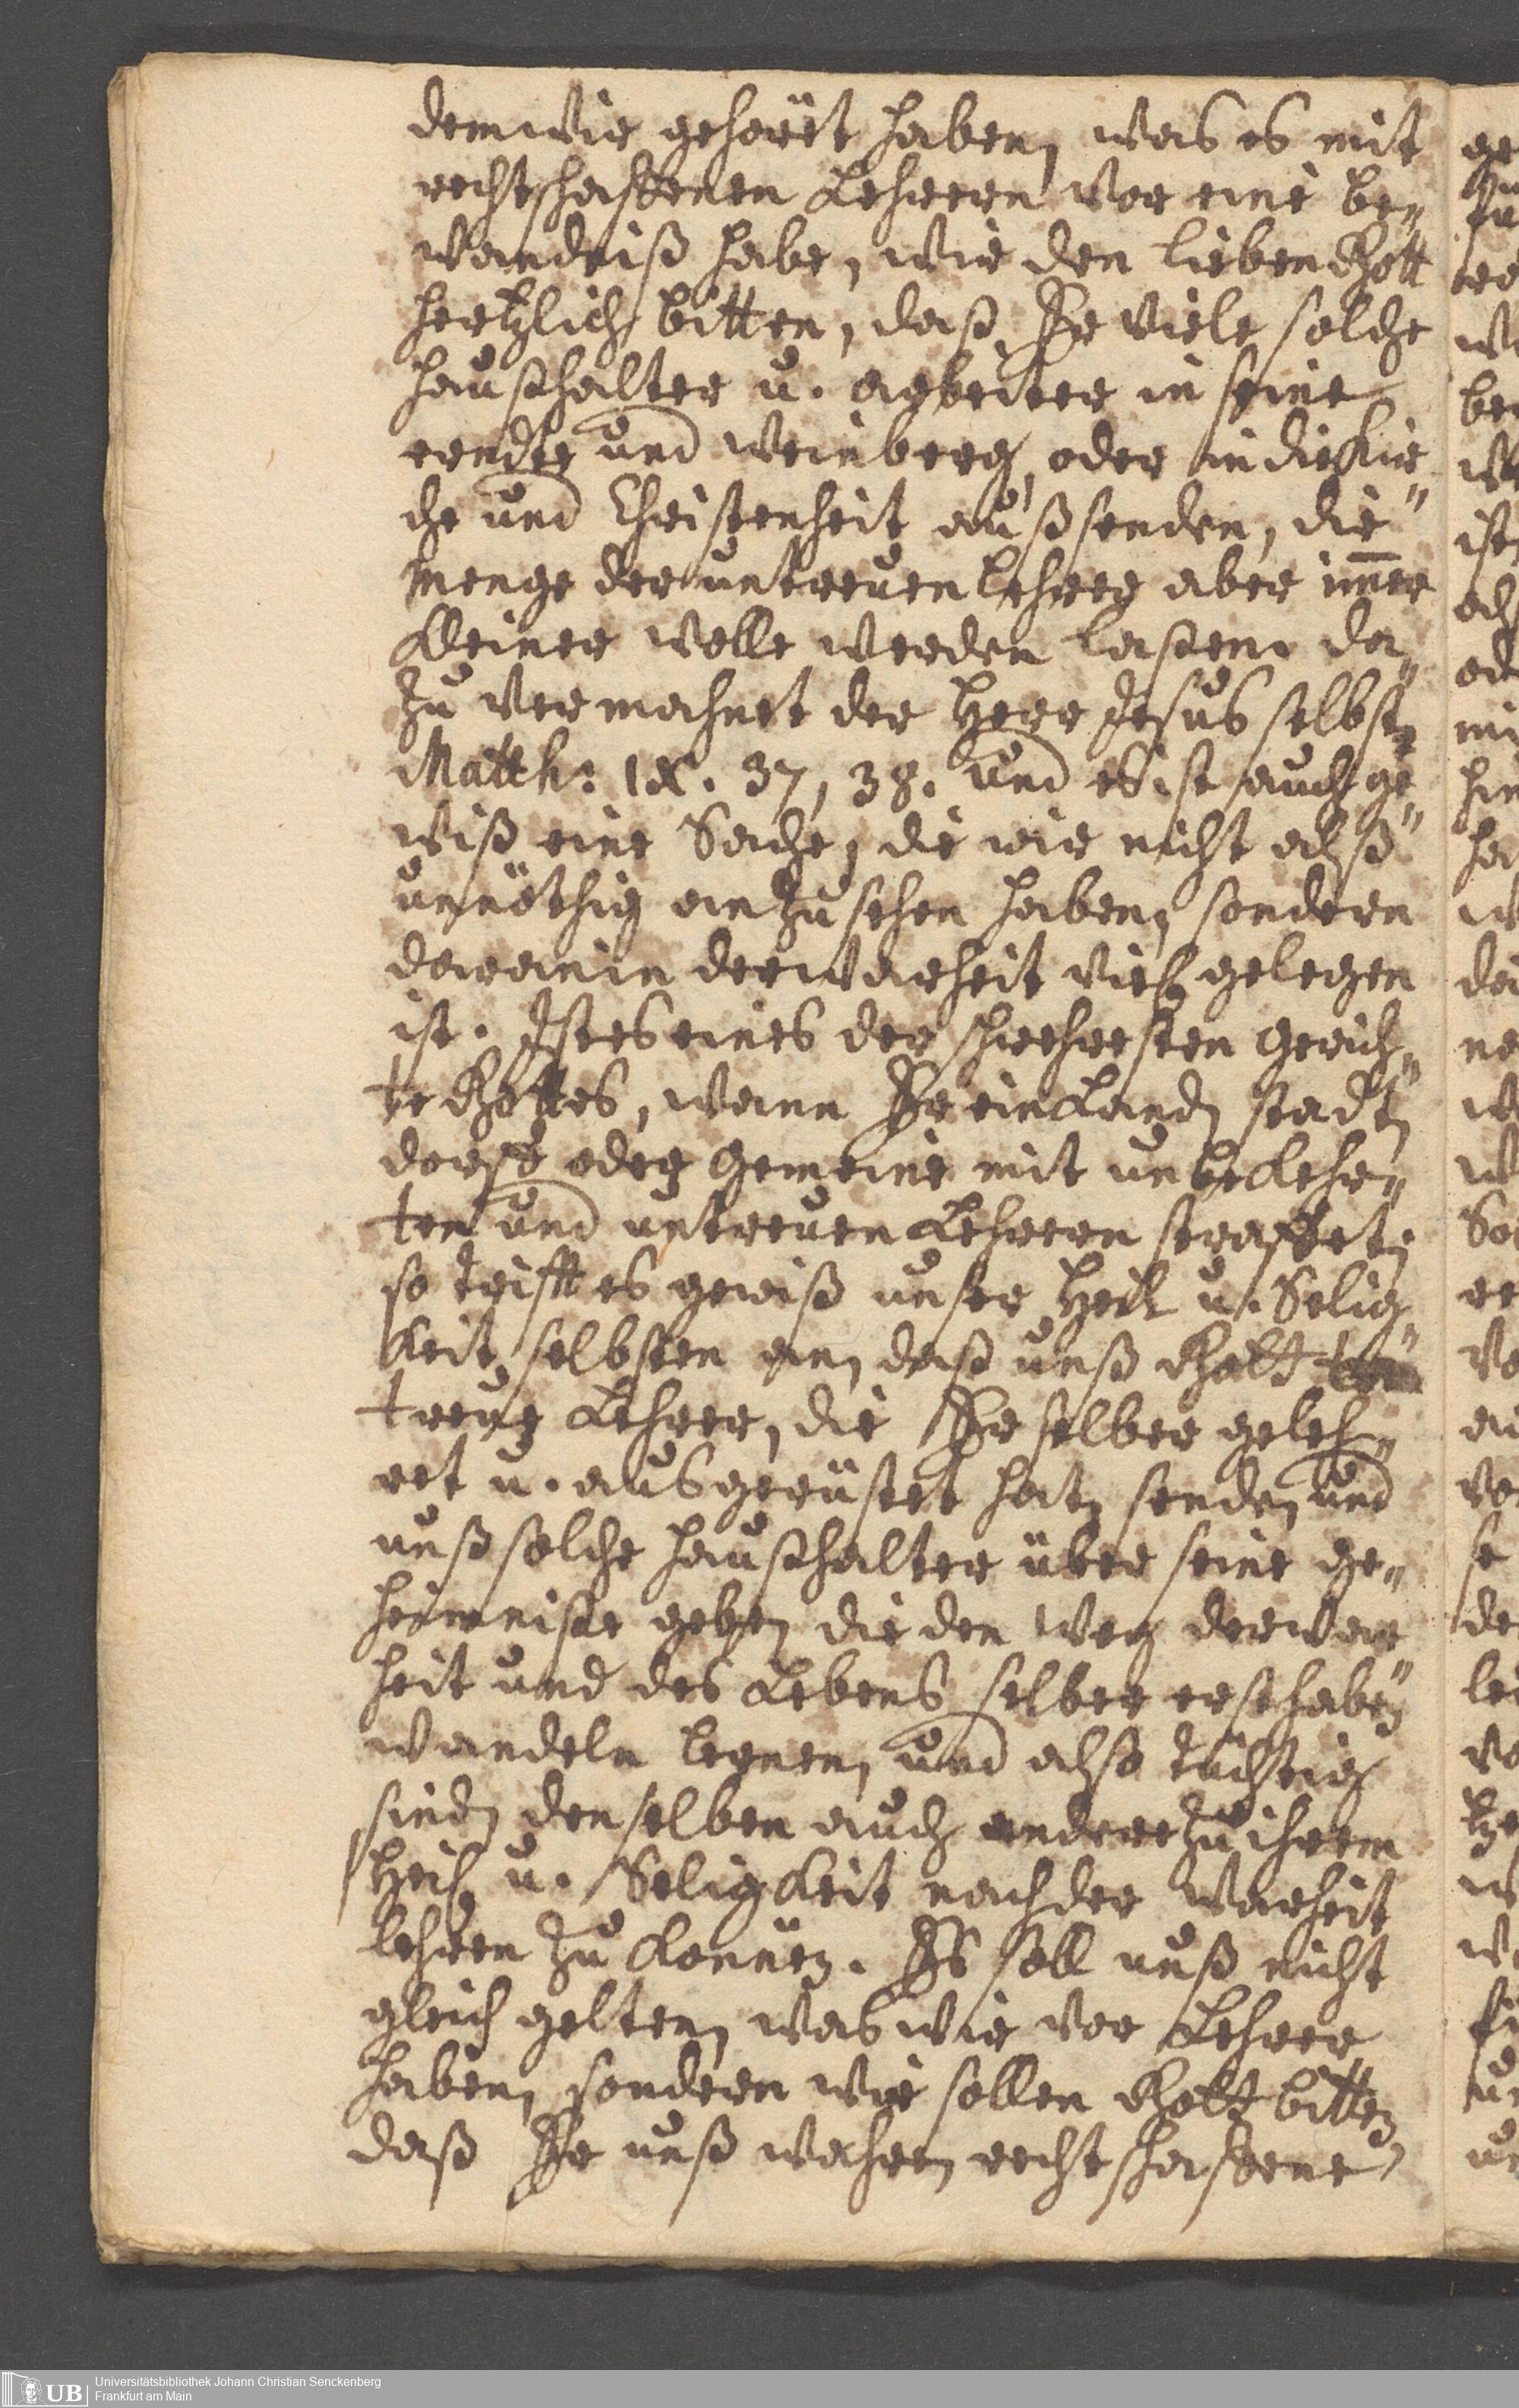 dem wir gehöret haben, was es mit
rechtschaffenen Lehrern vor eine be„
wandniß habe, wir den lieben Gott
hertzlich bitten, daß Er viele solche
haußhalter u. arbeiter in seine
erndte und weinberg, oder in die Kir„
che und Christenheit außsenden, die
menge der untreuen Lehrer aber im̅er
kleiner wolle werden laßen. da„
zu vermahnet der Herr Jesus selbst,
Matth: IX. 37, 38. und es ist auch ge„
wiß eine Sache, die wir nicht alß
unnöthig anzusehen haben, sondern
daran in der warheit viel gelegen
ist. Ist es eines der schwehresten Gerich„
te Gottes, wann Er ein Land, stadt,
dorff oder Gemeine mit unbekehr„
ten und untreuen Lehrern straffet;
so trifft es gewiß unser Heil u. Selig„
keit selbsten an, daß unß Gott
treue Lehrer, die Er selber geleh„
ret u. ausgerüstet hat, senden und
unß solche haußhalter über seine ge„
heimniße geben, die den weg der war„
heit und des Lebens selber erst haben
wandeln lernen, und also tüchtig
sind, denselben auch andere zu ihrem
Heil u. Seligkeit nach der warheit
lehren zu können. Es soll unß nicht
gleich gelten, was wir vor Lehrer
haben, sondern wir sollen Gott bitten,
daß Er unß wahre, rechtschaffene
UB
Universitätsbibliothek Johann Christian Senckenberg
Frankfurt am Main